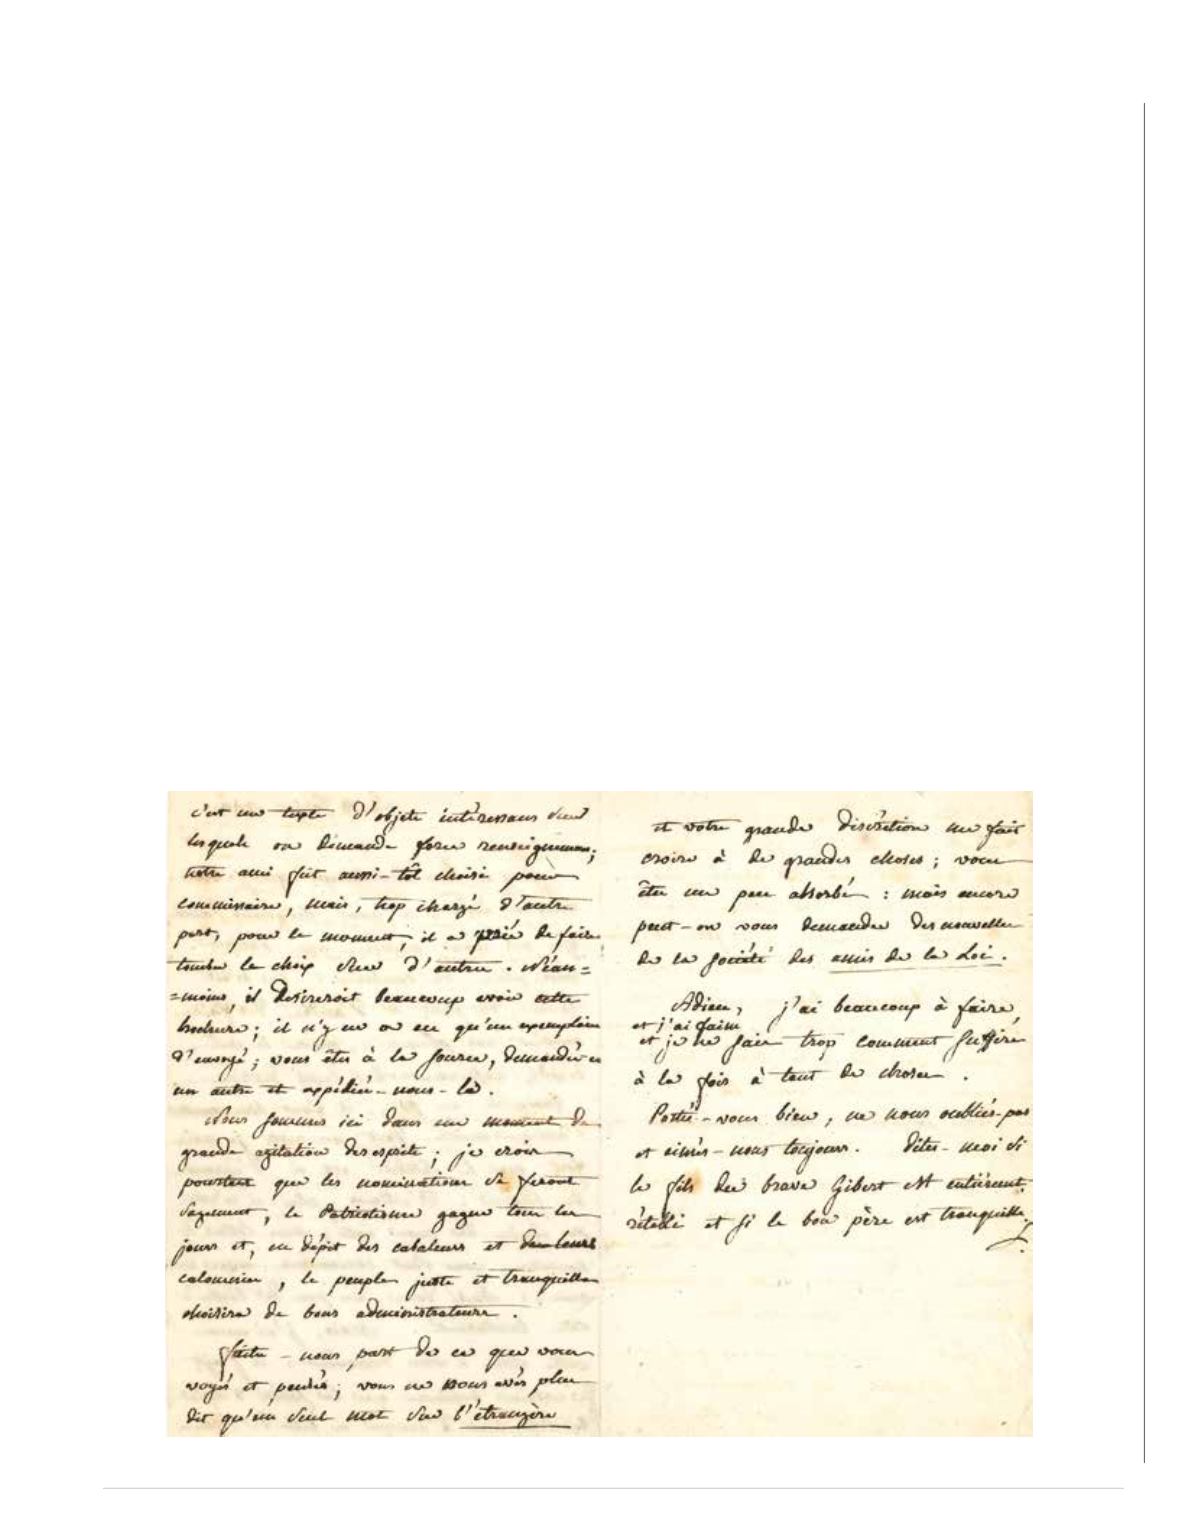 c'est un texte d'objets intéressans sur
lesquels on demande force renseignemens;
notre ami fut aussi-tôt choisi pour
commissaire, mais, trop chargé d'autre
part, pour le moment, il a prié de faire
tomber le choix sur d'autres. Néan=
=moins, il desireroit beaucoup avoir cette
brochure; il n'y en a eu qu'un exemplaire
d'envoyé; vous êtes à la source, demandés en
un autre et expédiés-nous-la.
Nous sommes ici dans un moment de
grande agitation des esprits; je crois
pourtant que les nominations se feront
sagement, le Patriotisme gagne tous les
jours et, en dépit des cabaleurs et de leurs
calomnies, le peuple juste et tranquille
choisira de bons administrateurs.
faites-nous part de ce que vous
voyés et pensés; vous ne nous avés plus
dit qu'un seul mot sur l'étrangère
et votre grande discrétion me fait
croire à de grandes choses; vous
êtes un peu absorbé: mais encore
peut-on vous demander des nouvelles
de la société des amis de la Loi.
Adieu, j'ai beaucoup à faire,
et j'ai faim
et je ne sais trop comment suffire
à la fois à tant de choses.
Portés-vous bien, ne nous oubliés-pas
et aimés-nous toujours. Dites-moi si
le fils du brave Gibert est entièremt.
rétabli et si le bon père est tranquille.